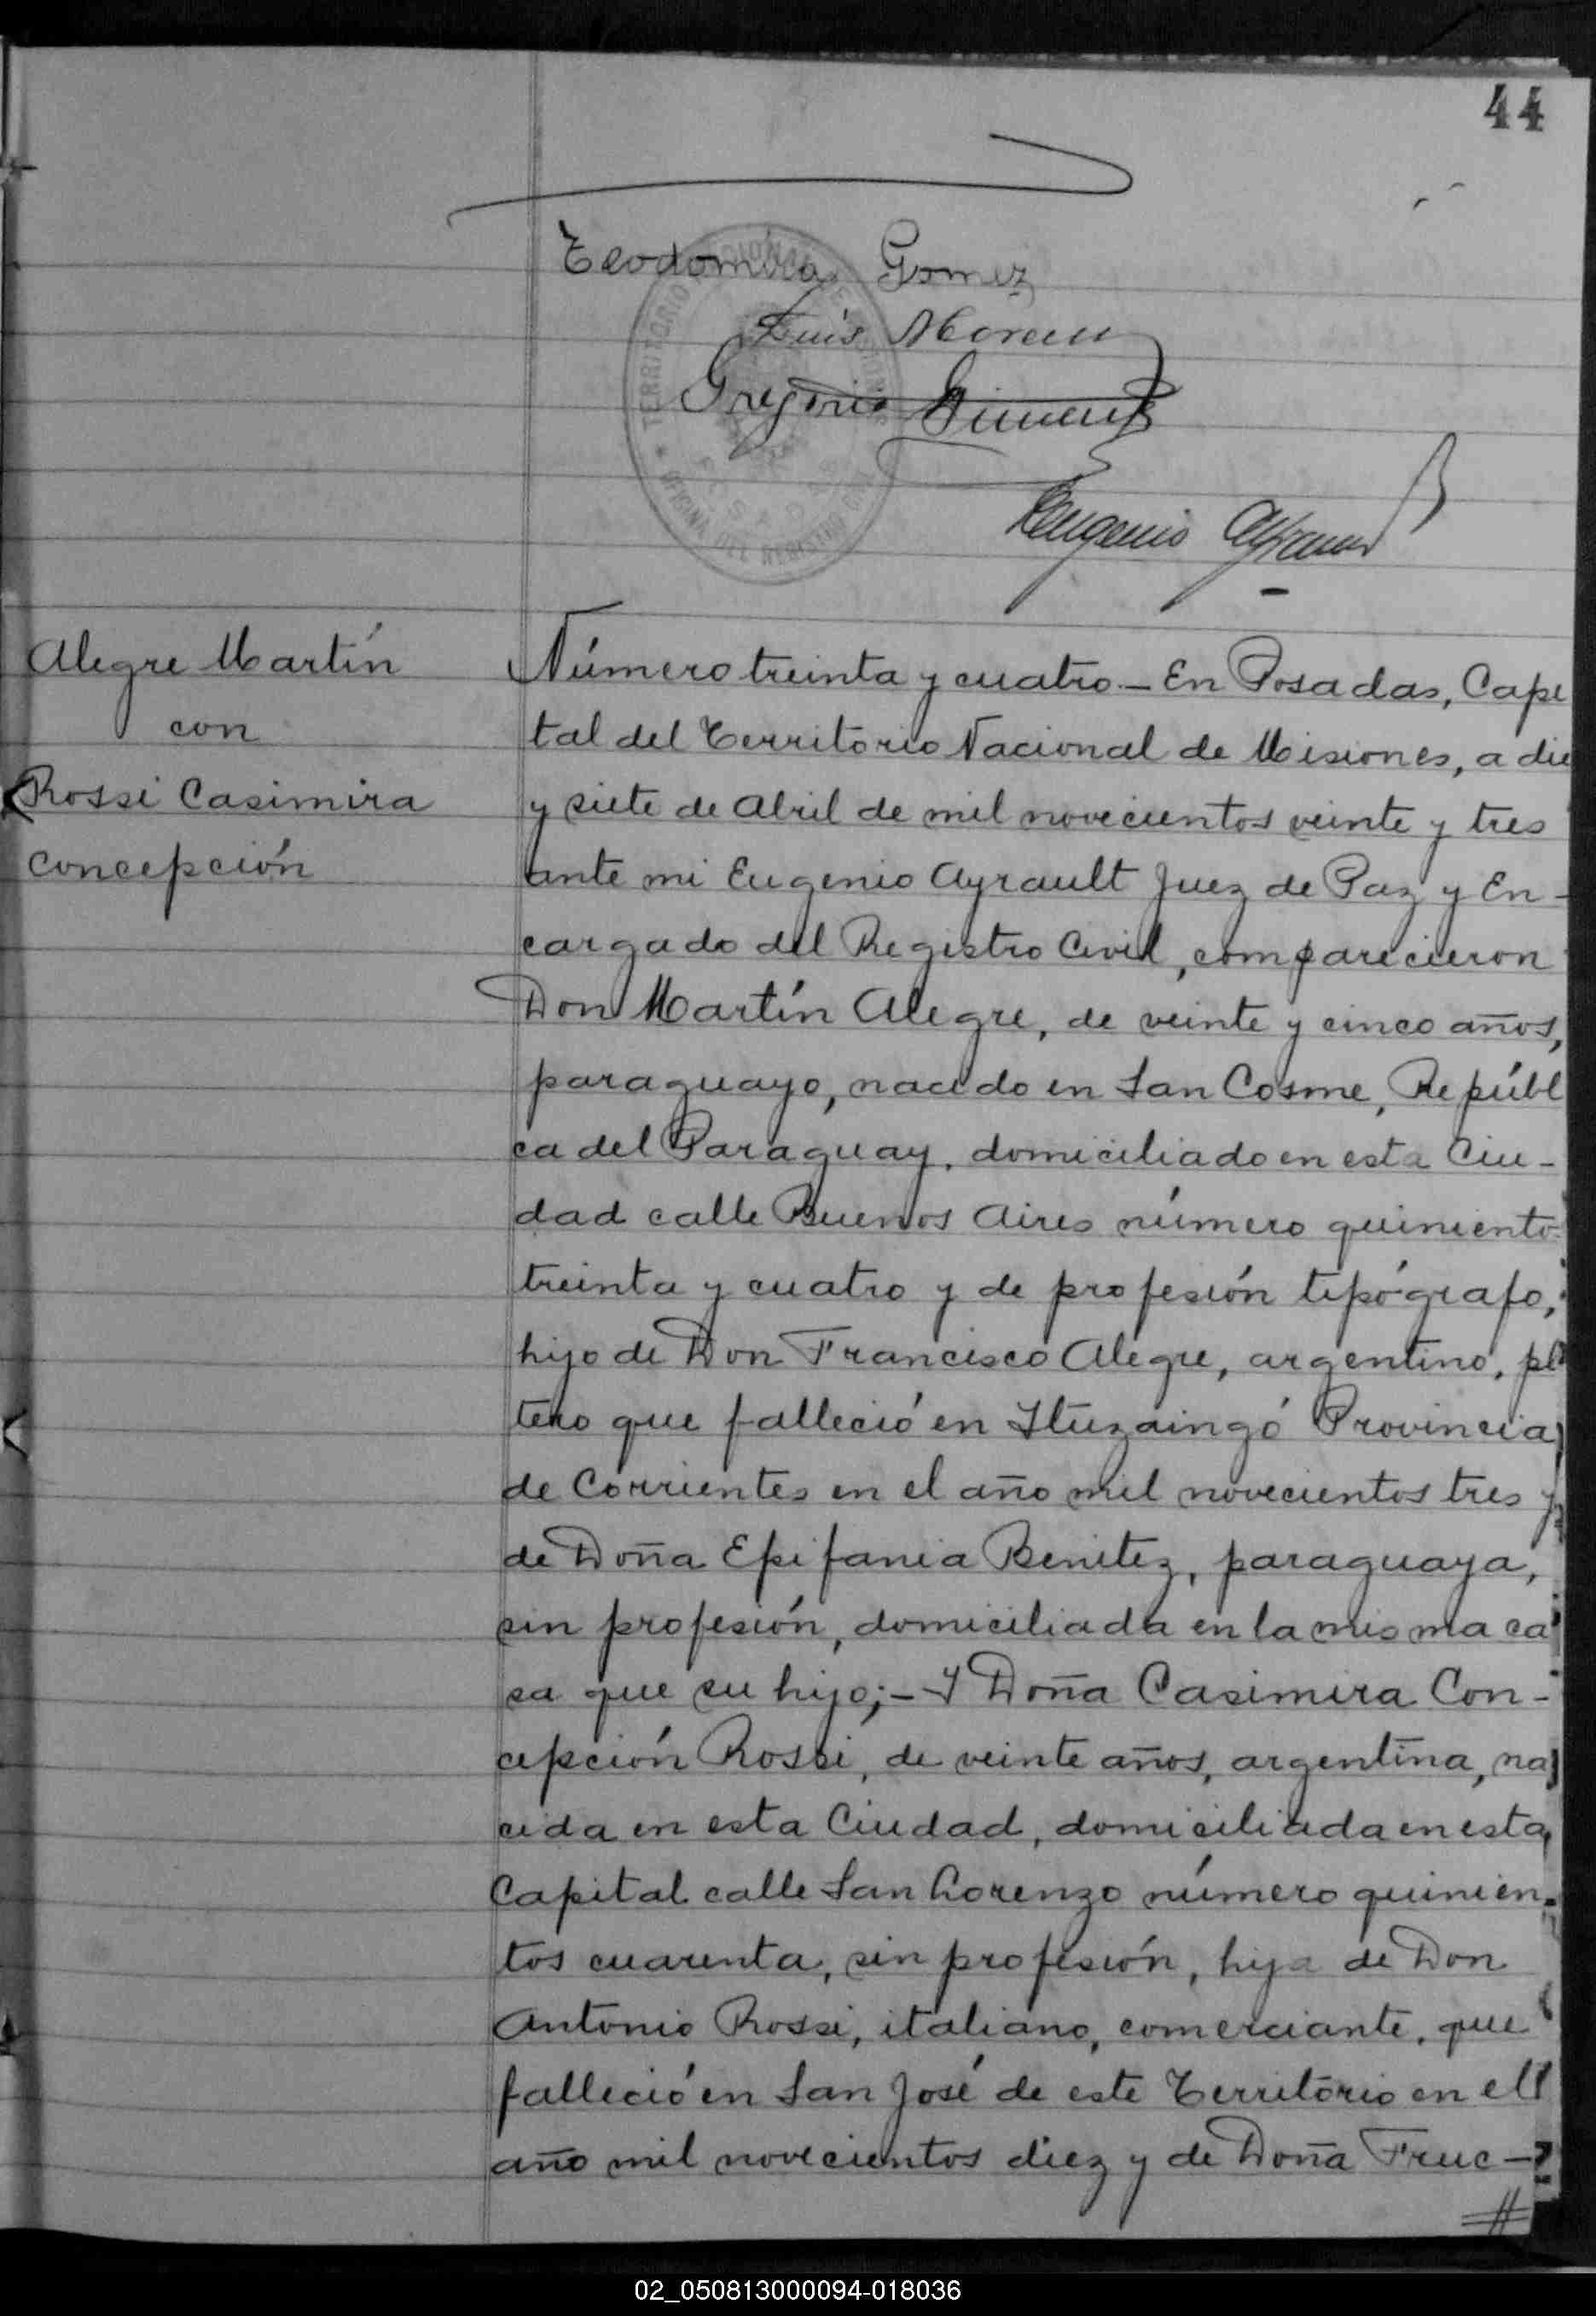 44
Teodomira Gomez
Luis
Gregorio
Eugenio
TERRITORIO NACIONAL DE MISIONES
OFICINA DEL REGISTRO CIVIL
Alegre Martín
con
Rossi Casimira
Concepción
Número treinta y cuatro.— En Posadas, Capi
tal del Territorio Nacional de Misiones, a die
y siete de Abril de mil novecientos veinte y tres
ante mi Eugenio Ayrault Juez de Paz y En-
cargado del Registro Civil, comparecieron
Don Martín Alegre, de veinte y cinco años,
paraguayo, nacido en San Cosme, Repúbl
ca del Paraguay, domiciliado en esta Ciu-
dad calle Buenos Aires número quiniento
treinta y cuatro y de profesión tipógrafo,
hijo de Don Francisco Alegre, argentino, pl
tero que falleció en Ituzaingó Provincia
de Corrientes en el año mil novecientos tres y
de Doña Epifania Benitez, paraguaya,
sin profesión, domiciliada en la misma ca
sa que su hijo;— Y Doña Casimira Con-
cepción Rossi, de veinte años, argentina, na
cida en esta Ciudad, domiciliada en esta
Capital calle San Lorenzo número quinien-
tos cuarenta, sin profesión, hija de Don
Antonio Rossi, italiano, comerciante, que
falleció en San José de este Territorio en el
año mil novecientos diez y de Doña Fruc-
//
02_050813000094-018036